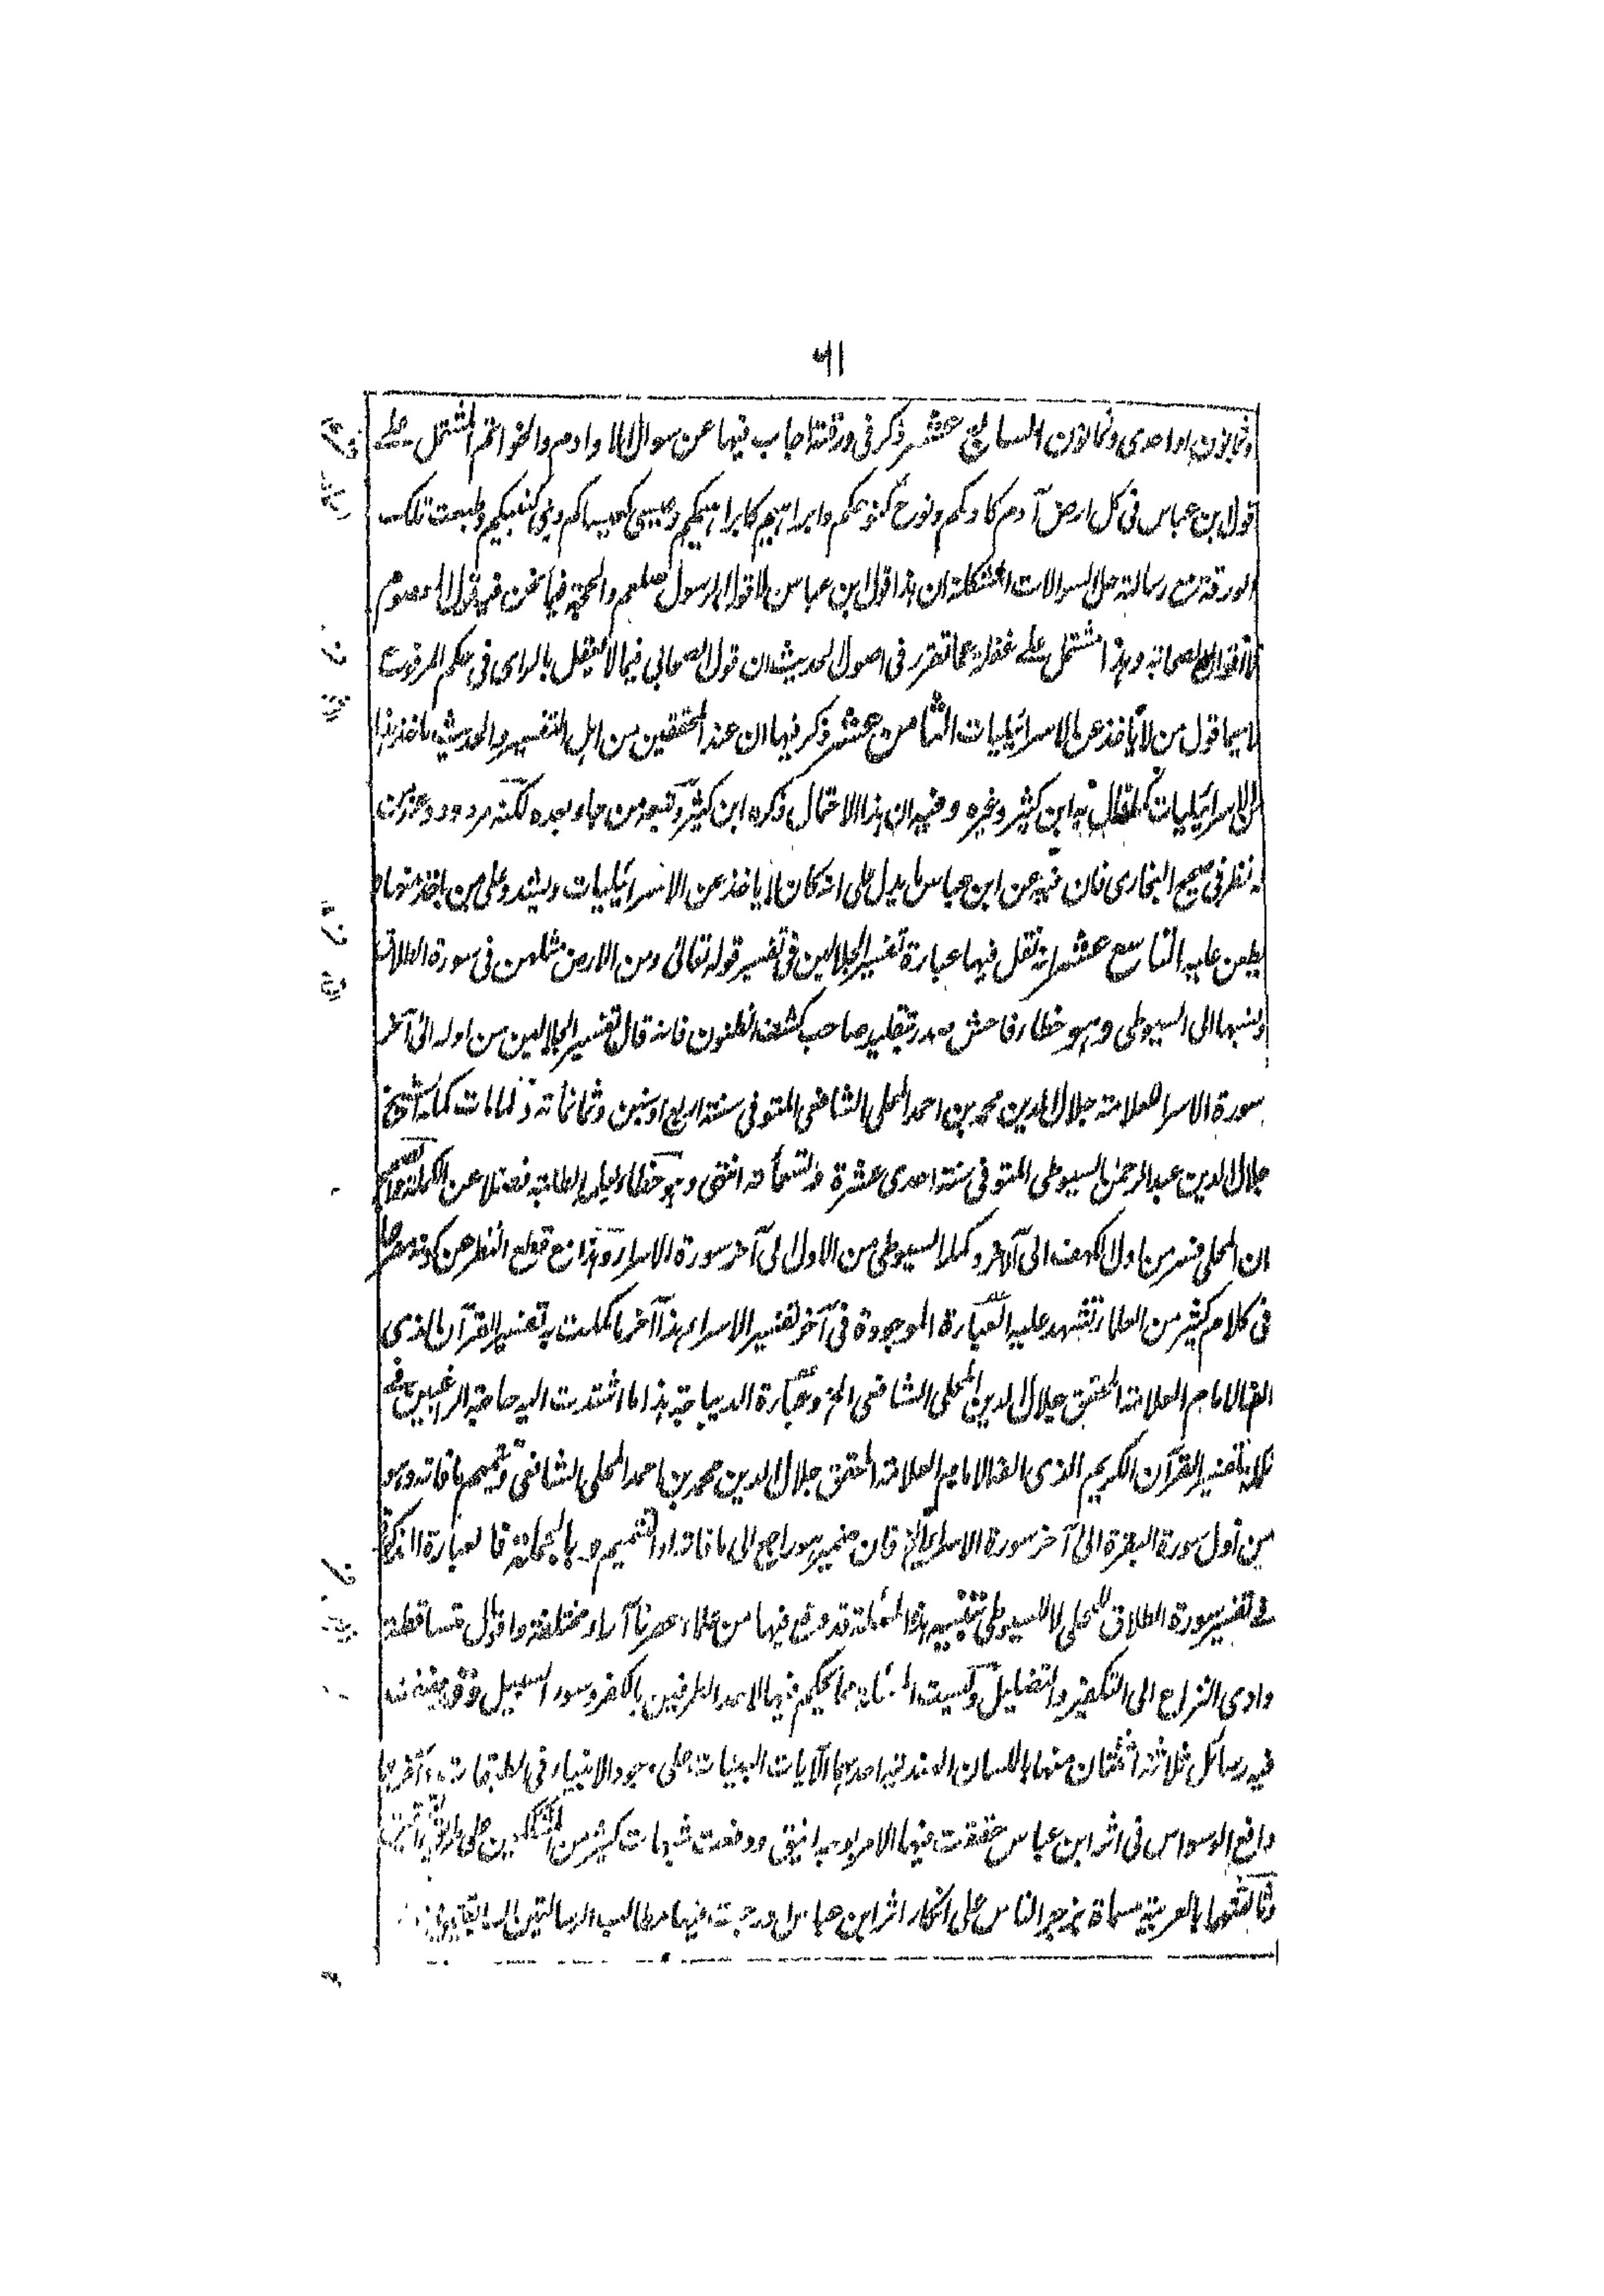 ١١
وثمانون او احدى وثمانون السابع عشر ذكر فى ورقته اجاب فيها عن سوال الاوادم والخواتم المشتمل على
قول ابن عباس فى كل ارض آدم كآدمكم ونوح كنوحكم وابراهيم كابراهيمكم وعيسى كعيساكم ونبى كنبيكم وطبعت تلك
الورقة مع رسالة حل السوالات المشكلة ان هذا قول ابن عباس لا قول الرسول صلعم والحجة فيما نحن فيه قول المعصوم
لا اقوال الصحابة وهذا مشتمل على غفلة عما تقرر فى اصول الحديث ان قول الصحابى فيما لا يعقل بالراى فى حكم المرفوع
لا سيما قول من لا ياخذ عن الاسرائيليات الثامن عشر ذكر فيها ان عند المحققين من اهل التفسير والحديث ماخذ هذا
الاسرائيليات كما قال به ابن كثير وغيره وفيه ان هذا الاحتمال ذكره ابن كثير وتبعه من جاء بعده لكنه مردود عند من
له نظر فى صحيح البخارى فان فيه عن ابن عباس ما يدل على انه كان لا ياخذ عن الاسرائيليات ويشدد على من ياخذ منها و
يطعن عليه التاسع عشر انه نقل فيها عبارة تفسير الجلالين فى تفسير قوله تعالى ومن الارض مثلهن فى سورة الطلاق
ونسبها الى السيوطى وهو خطاء فاحش صدر بتقليد صاحب كشف الظنون فانه قال تفسير الجلالين من اوله الى آخر
سورة الاسراء للعلامة جلال الدين محمد بن احمد المحلى الشافعى المتوفى سنة اربع وستين وثمانمائة ولما مات كمله الشيخ
جلال الدين عبد الرحمن السيوطى المتوفى سنة احدى عشرة وتسعمائة انتهى وهو خطاء يعلمه الطلبة فضلا عن الكملة
ان المحلى فسر من اول الكهف الى الآخر وكمله السيوطى من الاول الى آخر سورة الاسراء وهذا مع قطع النظر عن كونه مصرحا
فى كلام كثير من العلماء تشهد عليه العبارة الموجودة فى آخر تفسير الاسراء هذا آخر ما كملت به تفسير القرآن الذى
الفه الامام العلامة المحقق جلال الدين المحلى الشافعى الخ وعبارة الديباجة هذا ما اشتدت اليه حاجة الراغبين فى
تكملة تفسير القرآن الكريم الذى الفه الامام العلامة المحقق جلال الدين محمد بن احمد المحلى الشافعى وتتميم ما فاته وهو
من اول سورة البقرة الى آخر سورة الاسراء الخ فان ضمير هو راجع الى ما فاته او التتميم وبالجملة فالعبارة المذكورة
فى تفسير سورة الطلاق للمحلى لا للسيوطى تنبيه هذه المسئلة قد وقع فيها من علماء عصرنا آراء مختلفة واقوال متساقطة
وادى النزاع الى التكفير والتضليل وليست المسئلة مما يحكم فيها لاحد الطرفين بالكفر وسوء السبيل
فيه رسائل ثلاثة اثنتان منها باللسان الهندية احدهما الآيات البينات على وجود الانبياء فى الطبقات وآخرهما
دافع الوسواس فى اثر ابن عباس حققت فيها الامر بوجه انيق ودفعت شبهات كثير من المتكلمين على
وثالثتها بالعربية مسماة بزجر الناس على انكار اثر ابن عباس ودرجت فيها مطالب الرسالتين السابقتين